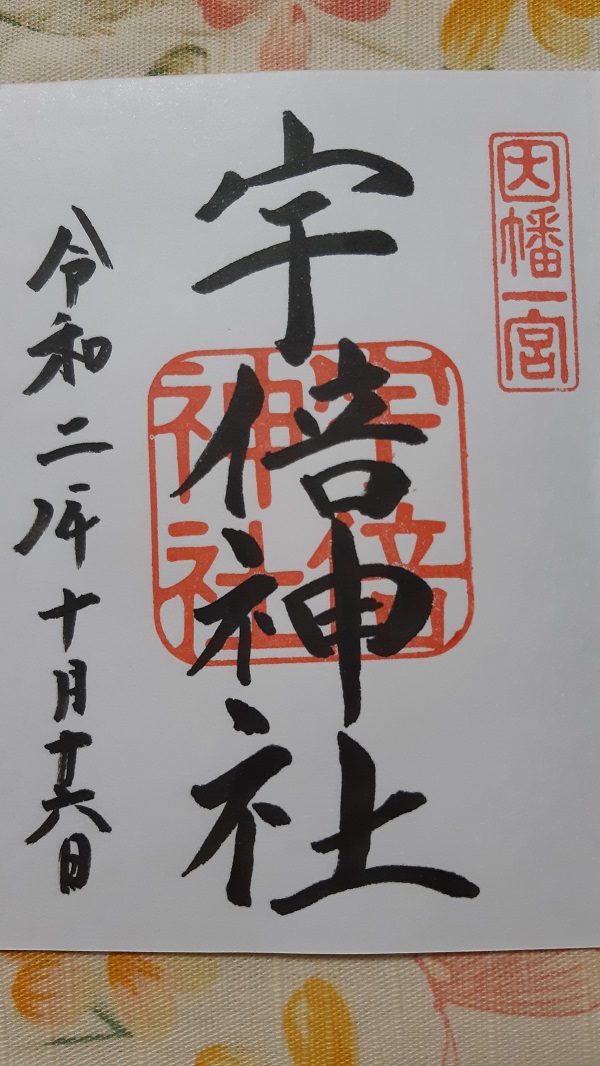 因幡一宮
宇倍神社
宇倍神社
令和二年十月十六日